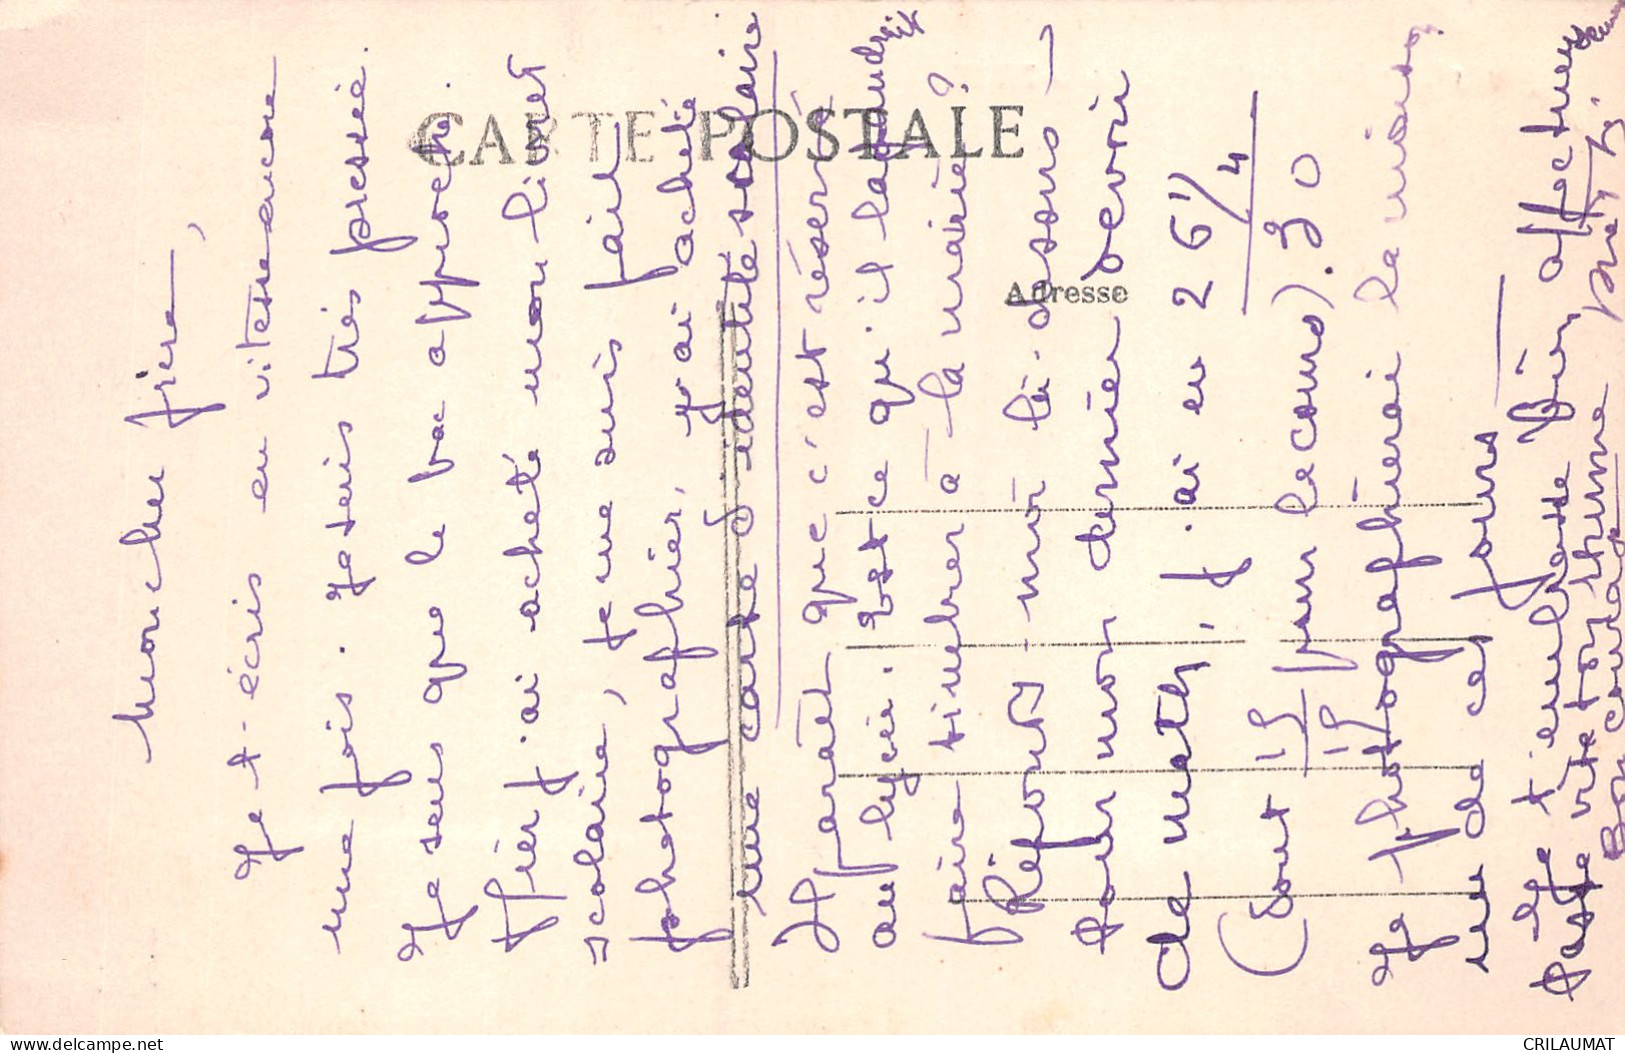 CARTE POSTALE
Adresse
Mon cher frère,
Je t'écris en vitesse encore
une fois. Je suis très pressé.
Je sens que le bac approche.
Hier j'ai acheté mon livret
scolaire, je me suis fait
photographier, j'ai acheté
une carte d'identité scolaire
Il paraît que c'est réservé
au lycée. Est-ce qu'il faudrait
faire timbrer à la mairie?
Réponds-moi là-dessus —
Pour mon dernier devoir
de math, j'ai eu 26 1/4
(dont 15/15 pour le cours). 30
Je photographierai la maison
un de ces jours
Je t'embrasse bien affectueusement
Passe vite ton thème
Bon courage
delcampe.net
CRILAUMAT